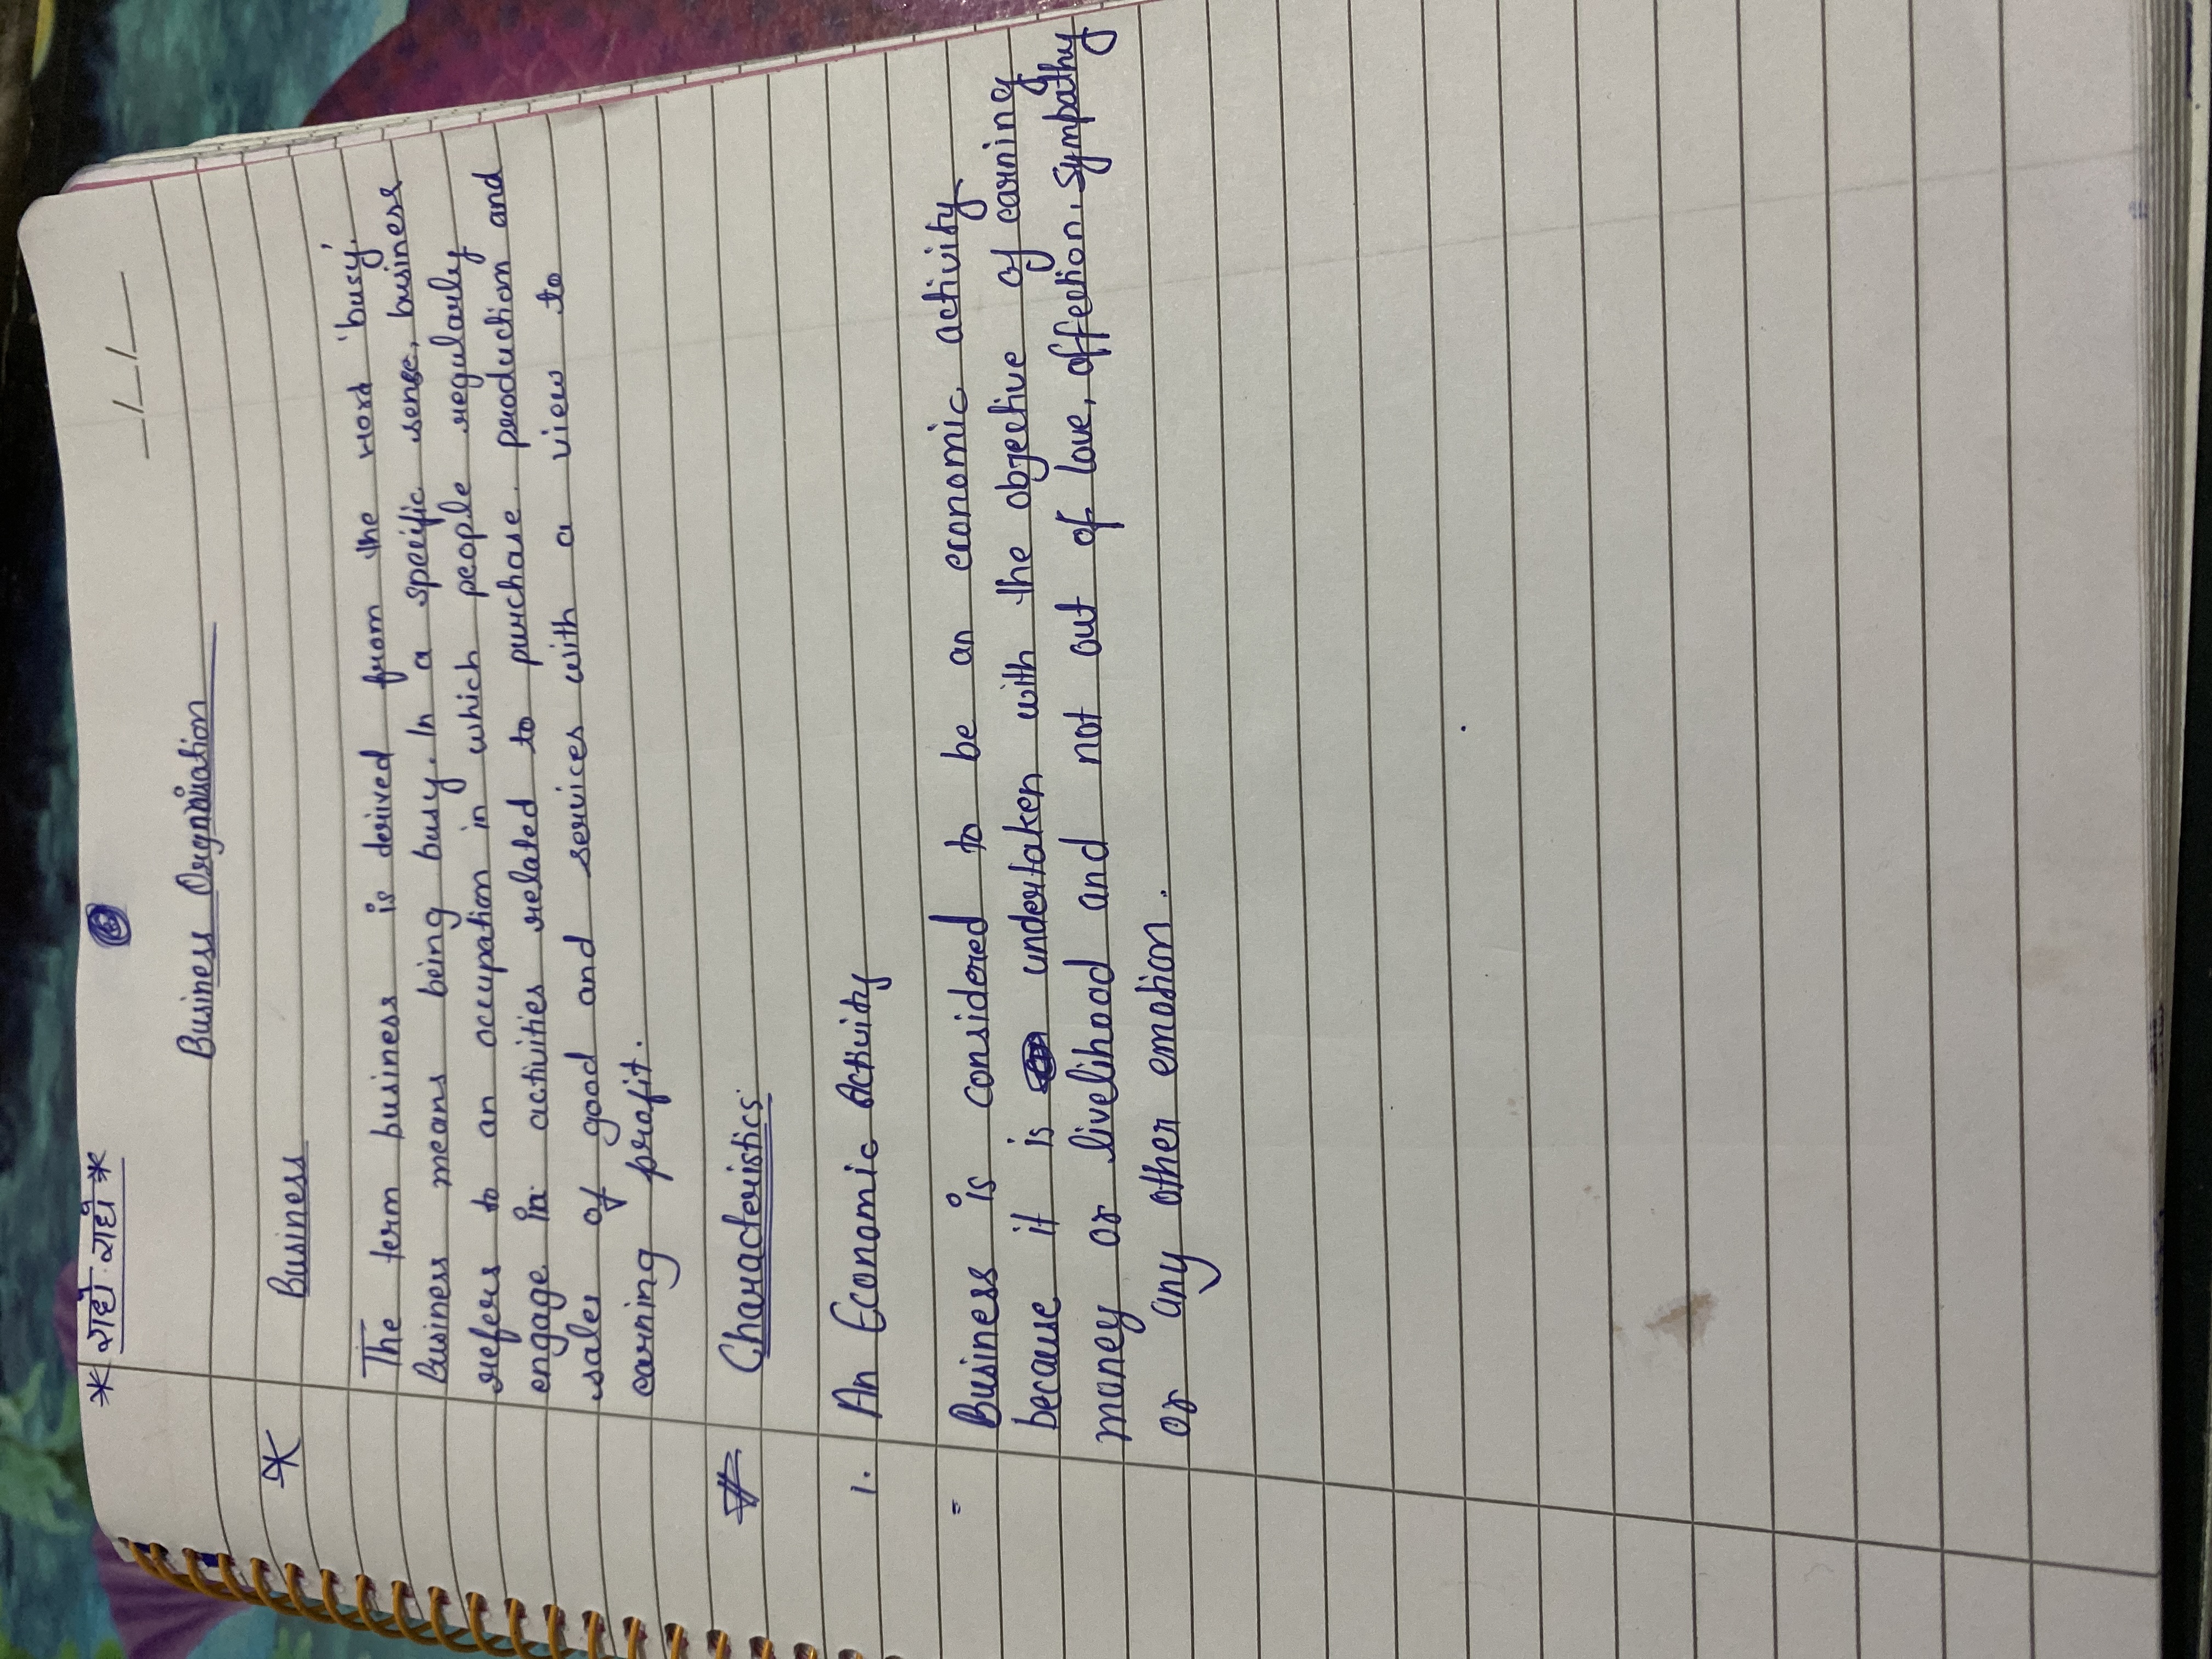 * राधे राधे *
Business Orgniuation
* Business
The term business is derived from the word 'busy'.
Business means being busy. In a specific sense, business
refers to an occupation in which people regularly
engage in activities related to purchase. production and
sales of good and services with a view to
earning profit.
# Characteristics
1. An Economic Activity
= Business is considered to be an economic activity
because it is undertaken with the objective of earning
money or livelihood and not out of love, affection, sympathy
or any other emotion.